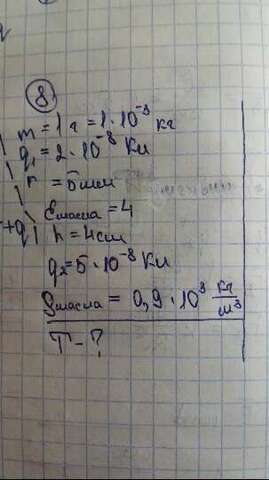 8
m = 1 г = 1 · 10⁻³ кг
q₁ = 2 · 10⁻⁸ Кл
r = 5 мм
εмасла = 4
+q h = 4см
q₂ = 5 · 10⁻⁸ Кл
ρмасла = 0,9 · 10³ кг/м³
T - ?